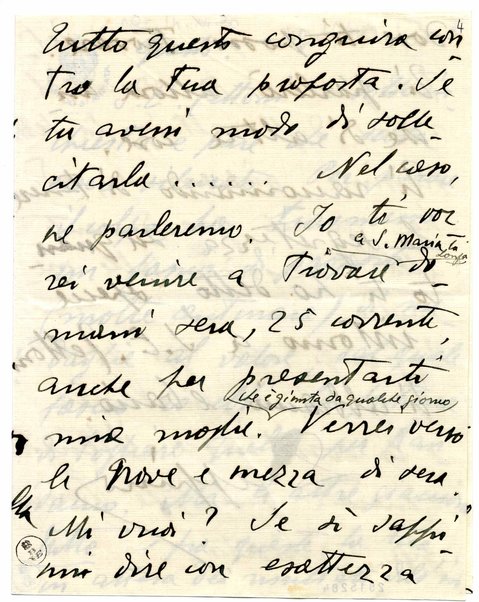 4
Tutto questo congiura con
tro la tua proposta. Se
tu avessi modo di solle
citarla....... Nel caso,
ne parleremo. Io ti vor
a S. Maria
rei venire a trovare do
mani sera, 25 corrente,
anche per presentarti
(che è giunta da qualche giorno)
mia moglie. Verrei verso
le nove e mezza di sera.
Mi vuoi? Se sì sappi
mi dire con esattezza